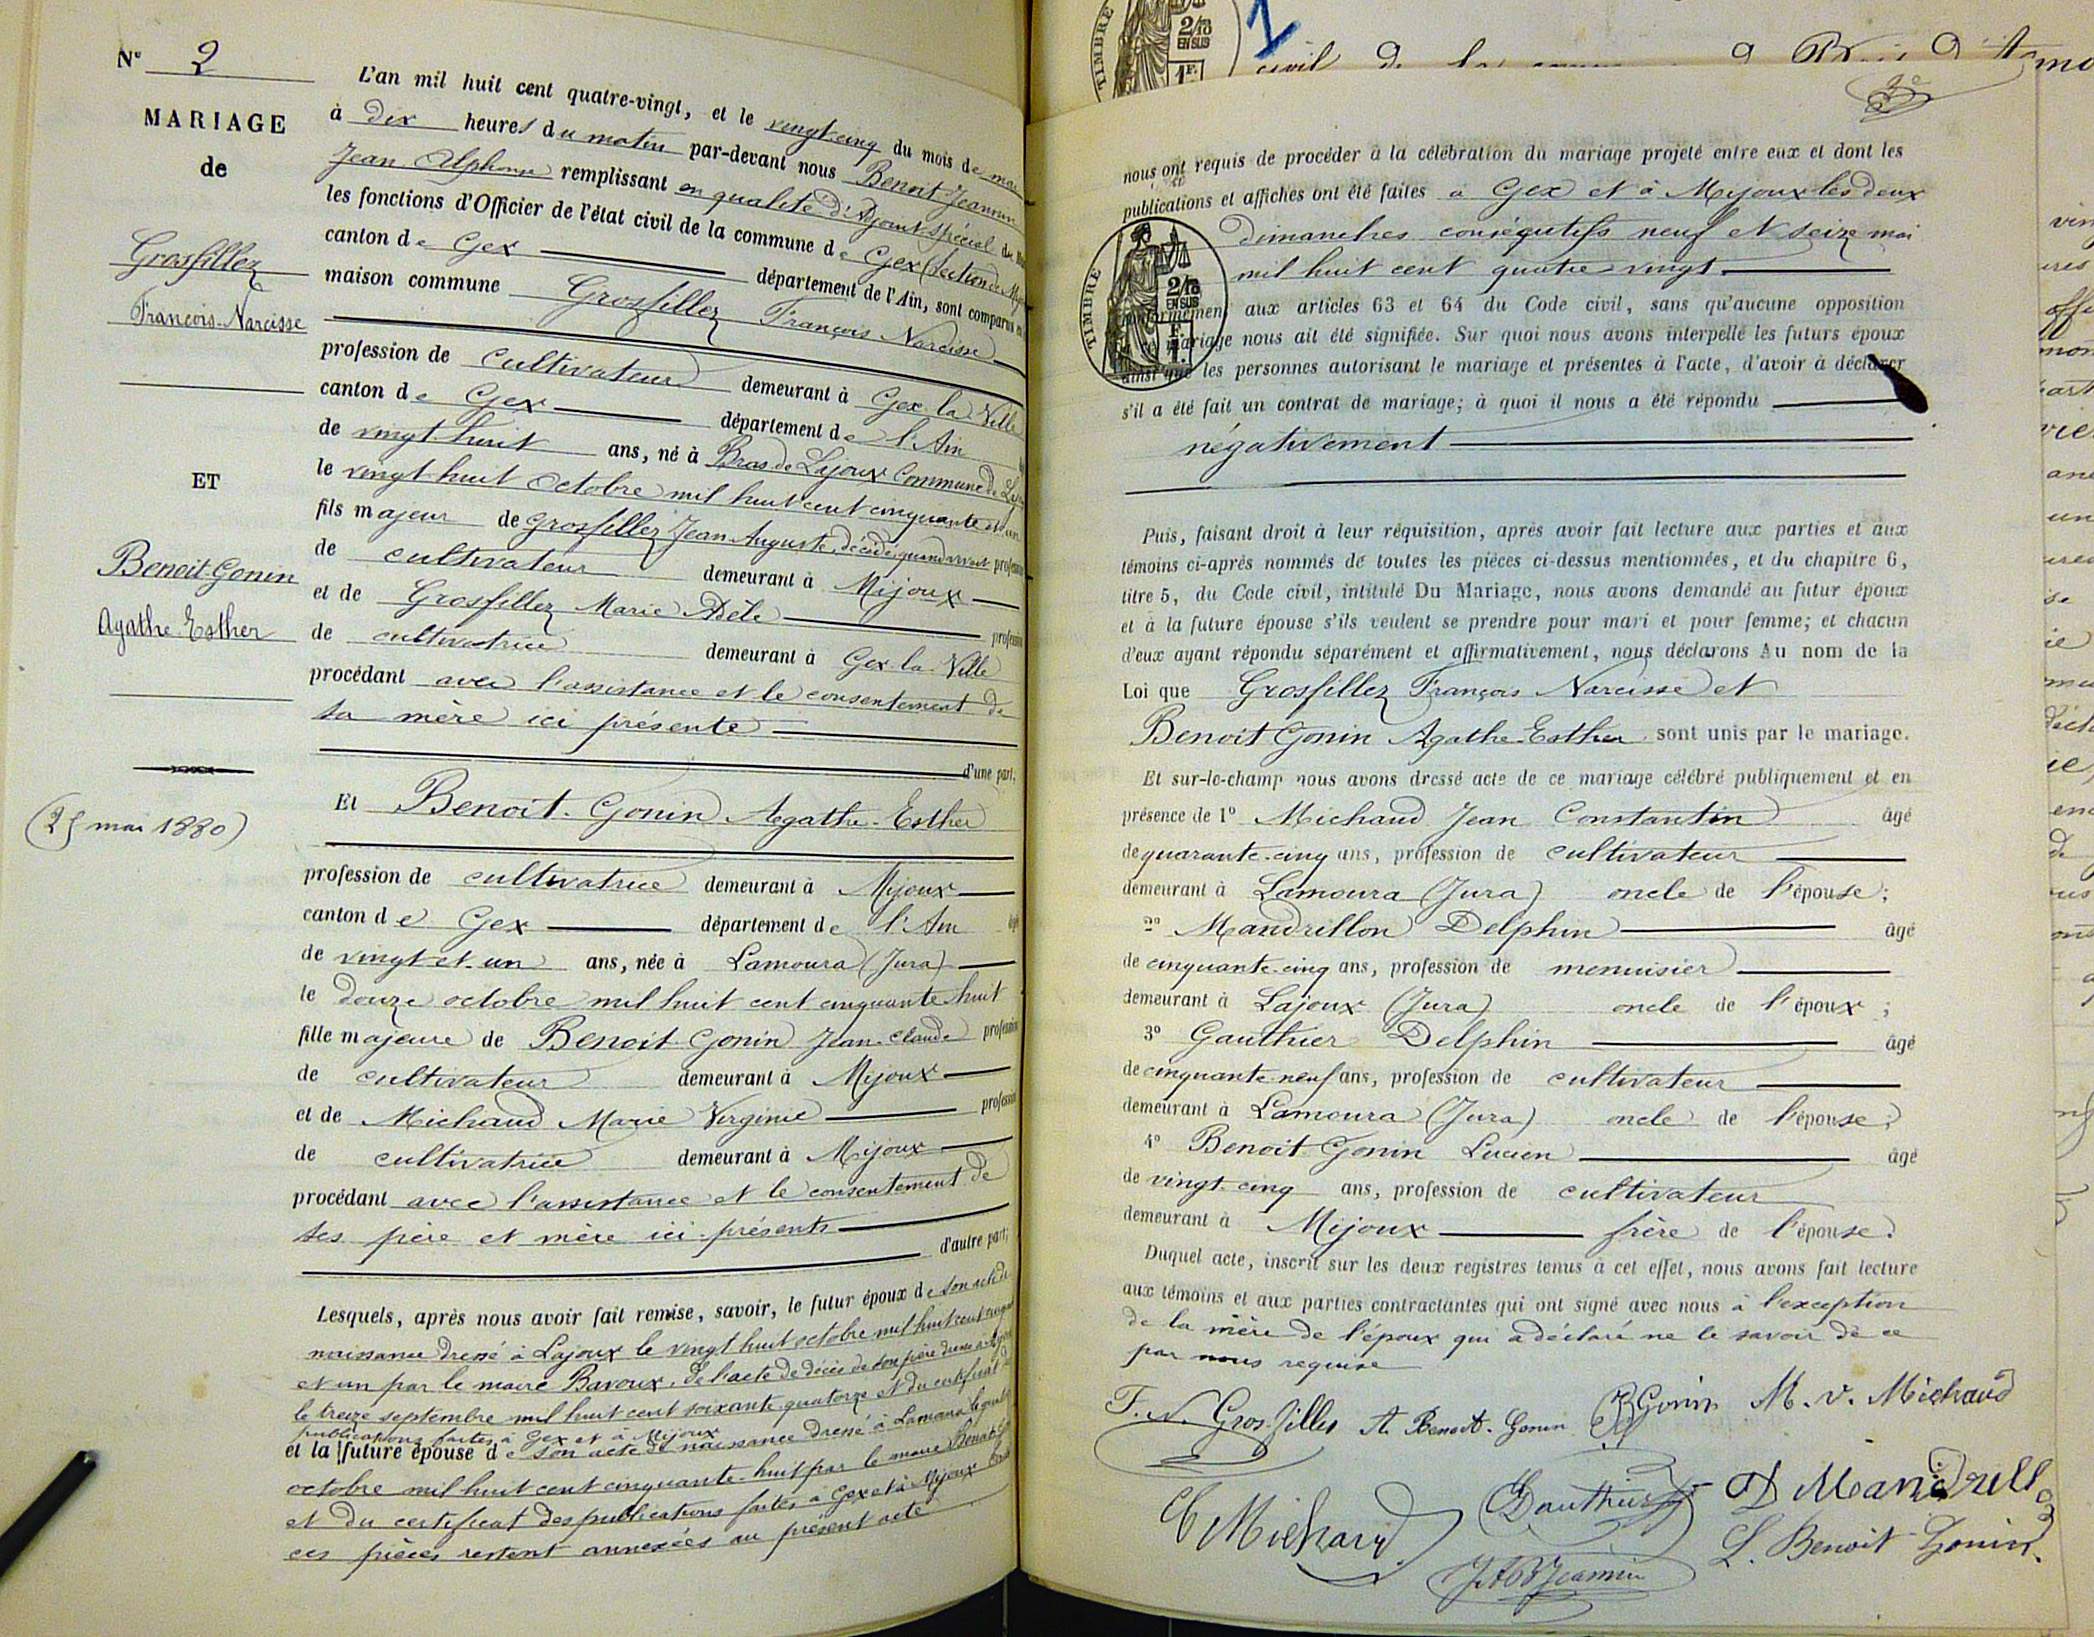 N° 2
MARIAGE
de
Grosfillez
François-Narcisse
ET
Benoit-Gonin
Agathe-Esther
(25 mai 1880)
L'an mil huit cent quatre-vingt, et le vingt-cinq du mois de mai
à dix heures du matin par-devant nous Benoit Jeannin
Jean Alphonse remplissant en qualité d'Adjoint spécial
les fonctions d'Officier de l'état civil de la commune de Gex (Section de
canton de Gex département de l'Ain, sont comparus en
maison commune Grosfillez François Narcisse
profession de cultivateur demeurant à Gex-la-Ville
canton de Gex département de l'Ain
de vingt-huit ans, né à Bras de Lajoux Commune de
le vingt-huit Octobre mil huit cent cinquante et un
fils majeur de Grosfillez Jean-Auguste, décédé, quand vivait profession
de cultivateur demeurant à Mijoux
et de Grosfillez Marie Adèle profession
de cultivatrice demeurant à Gex-la-Ville
procédant avec l'assistance et le consentement de
sa mère ici présente
d'une part,
Et Benoit-Gonin Agathe-Esther
profession de cultivatrice demeurant à Mijoux
canton de Gex département de l'Ain
de vingt-et-un ans, née à Lamoura (Jura)
le douze octobre mil huit cent cinquante-huit
fille majeure de Benoit-Gonin Jean-Claude profession
de cultivateur demeurant à Mijoux
et de Michaud Marie Virginie profession
de cultivatrice demeurant à Mijoux
procédant avec l'assistance et le consentement de
ses père et mère ici présents
d'autre part;
Lesquels, après nous avoir fait remise, savoir, le futur époux de son acte de
naissance dressé à Lajoux le vingt huit octobre mil huit cent
et un par le maire Bavoux, de l'acte de décès de son père dressé à
le treize septembre mil huit cent soixante-quatorze et du certificat
publications faites à Gex et à Mijoux
et la future épouse de son acte de naissance dressé à Lamoura le
octobre mil huit cent cinquante-huit par le maire Benoit
et du certificat des publications faites à Gex et à Mijoux
ces pièces restent annexées au présent acte
TIMBRE
2/10
EN SUS
1 F.
1
civil de la
nous ont requis de procéder à la célébration du mariage projeté entre eux et dont les
publications et affiches ont été faites à Gex et à Mijoux les deux
dimanches consécutifs neuf et seize mai
mil huit cent quatre vingt
conformément aux articles 63 et 64 du Code civil, sans qu'aucune opposition
mariage nous ait été signifiée. Sur quoi nous avons interpellé les futurs époux
ainsi que les personnes autorisant le mariage et présentes à l'acte, d'avoir à déclarer
s'il a été fait un contrat de mariage; à quoi il nous a été répondu
négativement
TIMBRE
2/10
EN SUS
Puis, faisant droit à leur réquisition, après avoir fait lecture aux parties et aux
témoins ci-après nommés de toutes les pièces ci-dessus mentionnées, et du chapitre 6,
titre 5, du Code civil, intitulé Du Mariage, nous avons demandé au futur époux
et à la future épouse s'ils veulent se prendre pour mari et pour femme; et chacun
d'eux ayant répondu séparément et affirmativement, nous déclarons Au nom de la
Loi que Grosfillez François Narcisse et
Benoit Gonin Agathe-Esther sont unis par le mariage.
Et sur-le-champ nous avons dressé acte de ce mariage célébré publiquement et en
présence de 1° Michaud Jean Constantin âgé
de quarante-cinq ans, profession de cultivateur
demeurant à Lamoura (Jura) oncle de l'épouse;
2° Mandrillon Delphin âgé
de cinquante-cinq ans, profession de menuisier
demeurant à Lajoux (Jura) oncle de l'époux;
3° Gauthier Delphin âgé
de cinquante-neuf ans, profession de cultivateur
demeurant à Lamoura (Jura) oncle de l'épouse;
4° Benoit-Gonin Lucien âgé
de vingt-cinq ans, profession de cultivateur
demeurant à Mijoux frère de l'épouse.
Duquel acte, inscrit sur les deux registres tenus à cet effet, nous avons fait lecture
aux témoins et aux parties contractantes qui ont signé avec nous à l'exception
de la mère de l'époux qui a déclaré ne le savoir de ce
par nous requise
F. N. Grosfillez A. Benoit-Gonin Gonin M. V. Michaud
C Michaud Gauthier D Mandrillon
L. Benoit Gonin.
J A B Jeannin